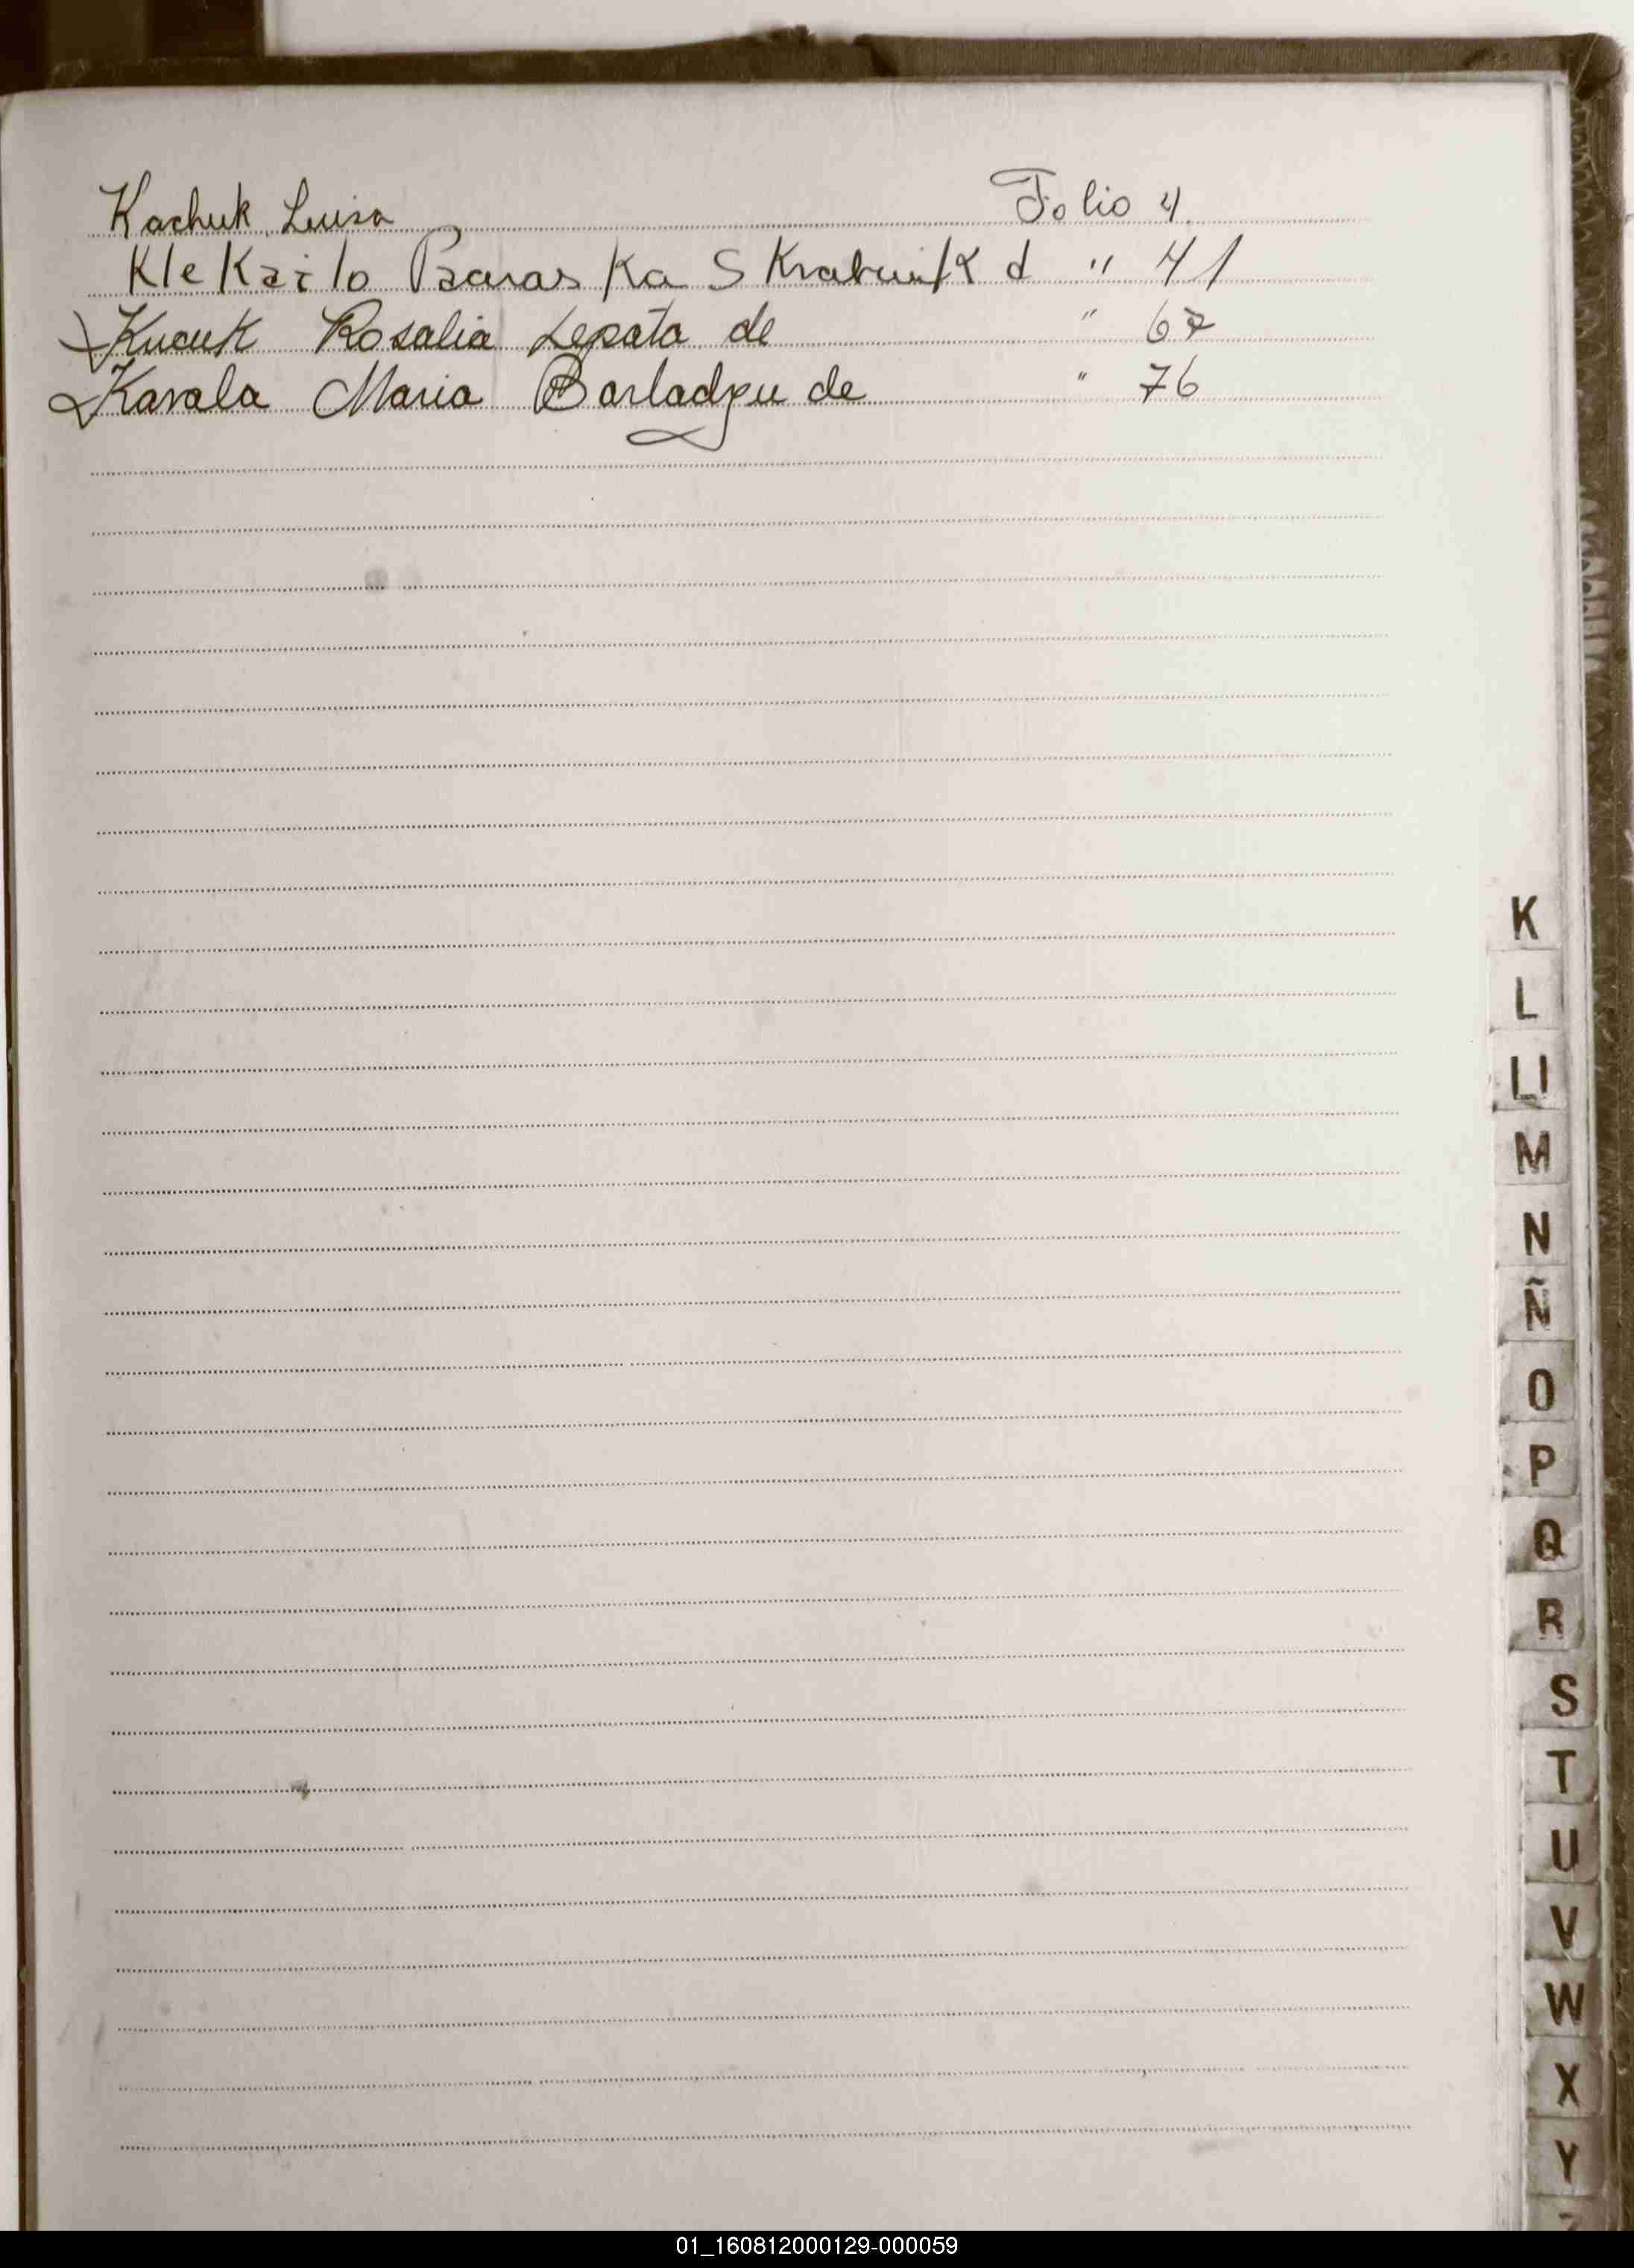 Kachuk Luisa Folio 4
Klekailo Paraska d " 41
Kucuk Rosalia Lepata de " 67
Kavala Maria Barladyu de " 76
K
L
Ll
M
N
Ñ
O
P
Q
R
S
T
U
V
W
X
Y
01_160812000129-000059